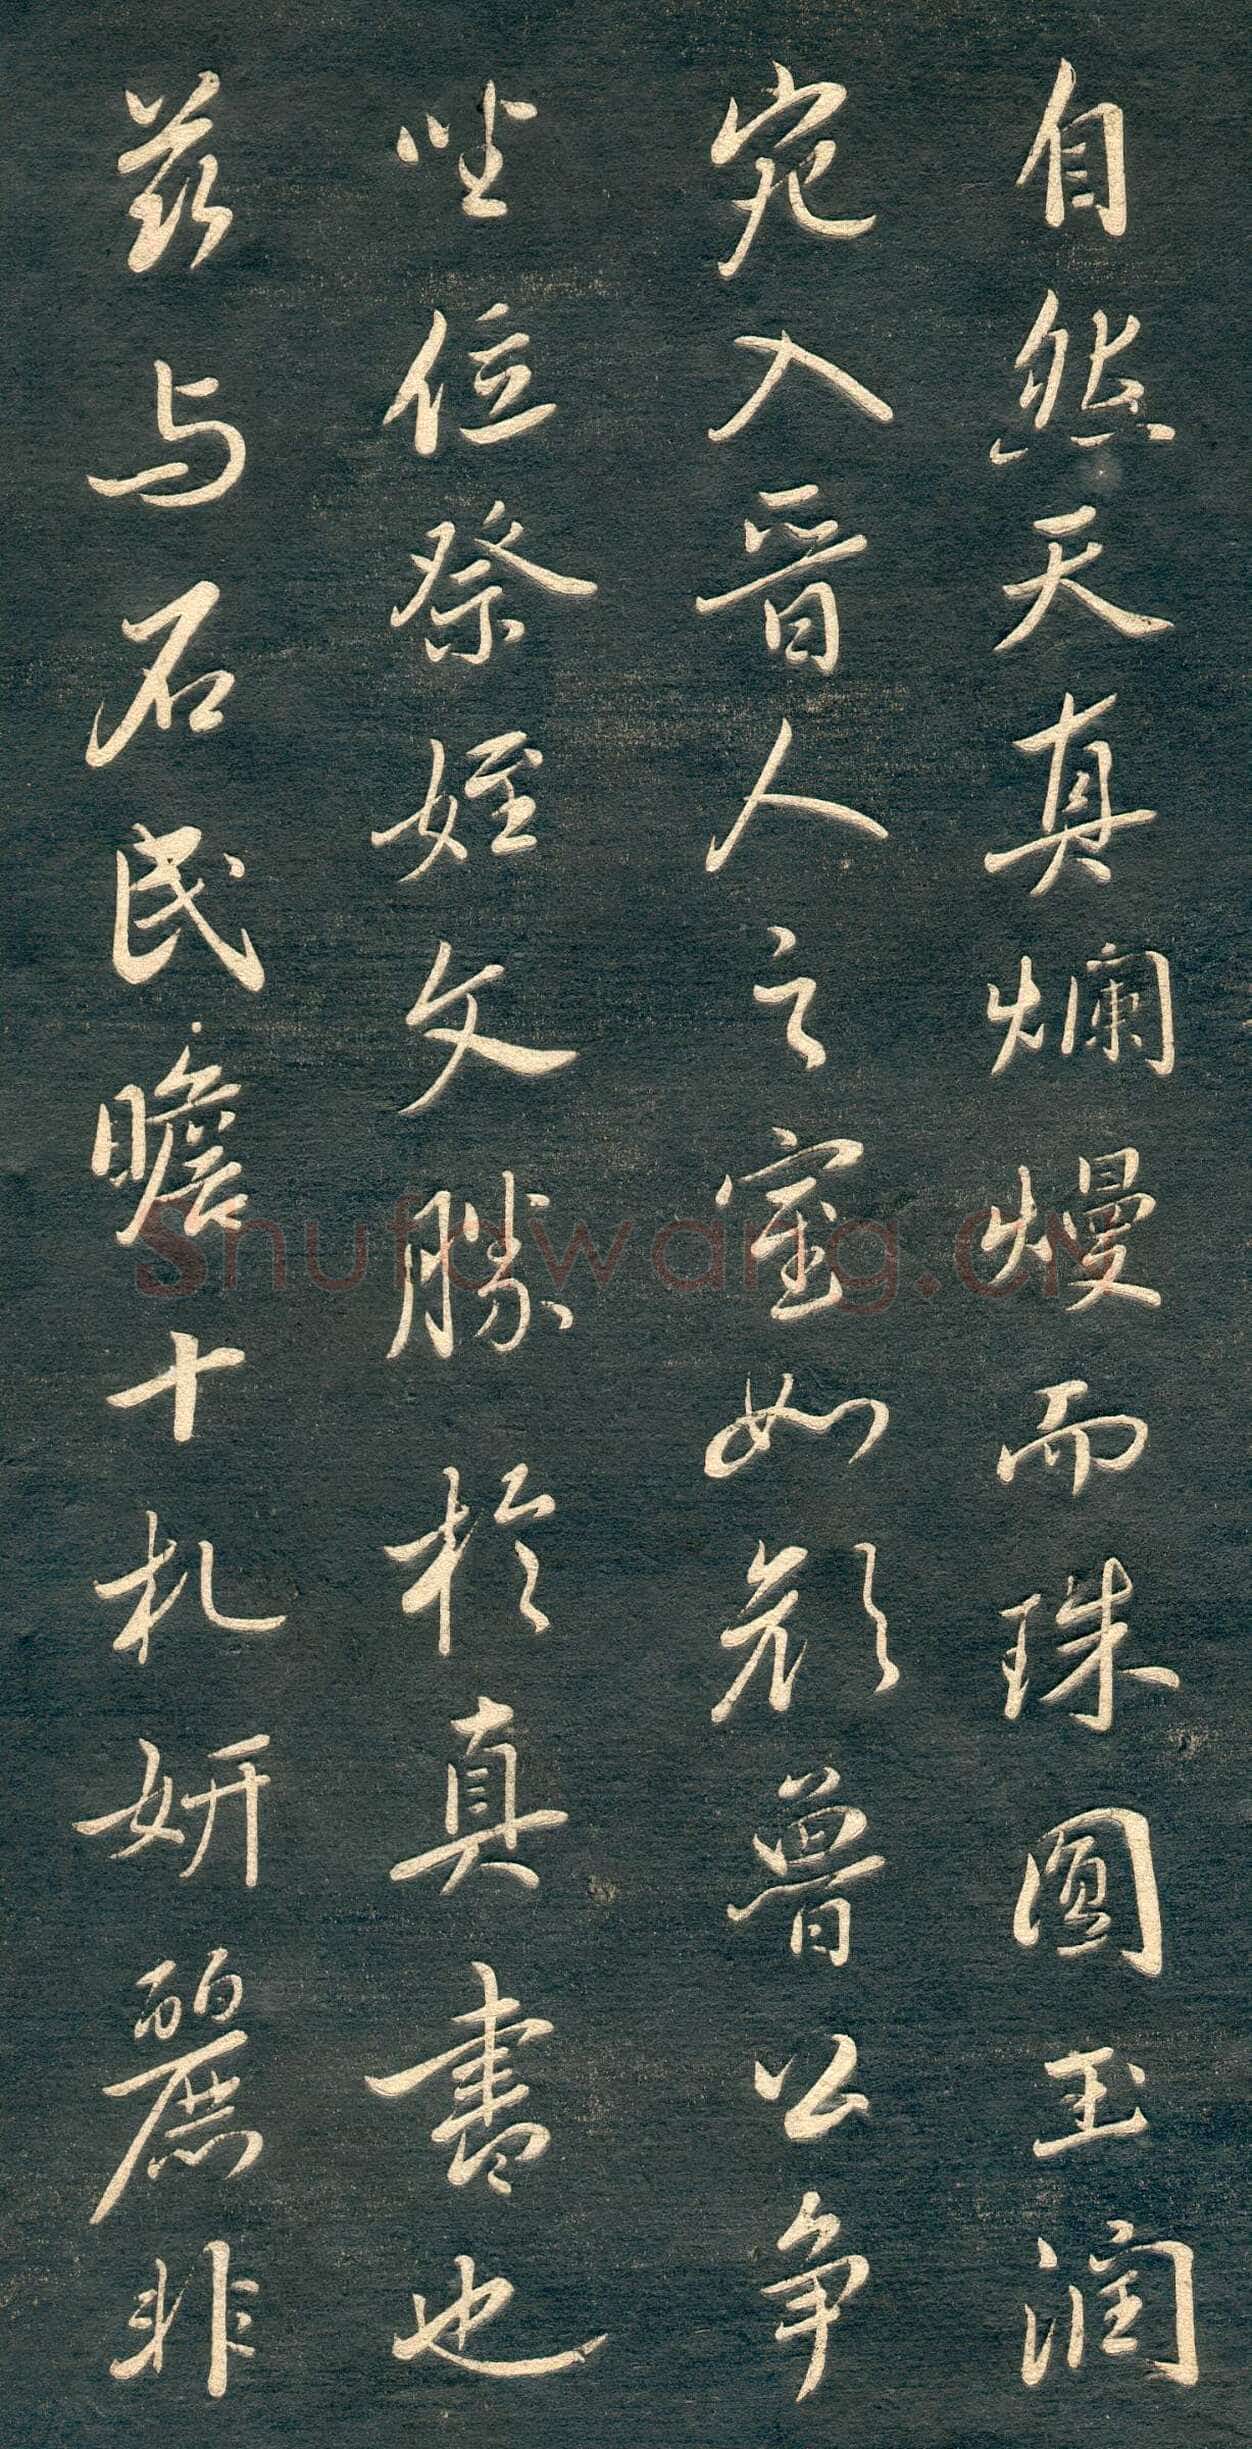 自然天真爛熳而珠圓玉潤
宛入晉人之室如顏魯公争
坐位祭姪文勝於真書也
茲与石民瞻十札妍麗非
Shufawang.cn